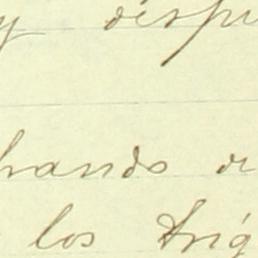 y despu
hando d
los trig